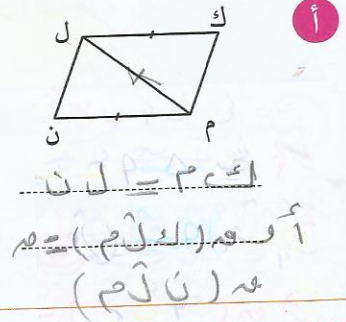 أ
ك
ل
م
ن
ك م = ل ن
أو ق (ك ل̂ م) = ق
ق (ن ل̂ م)